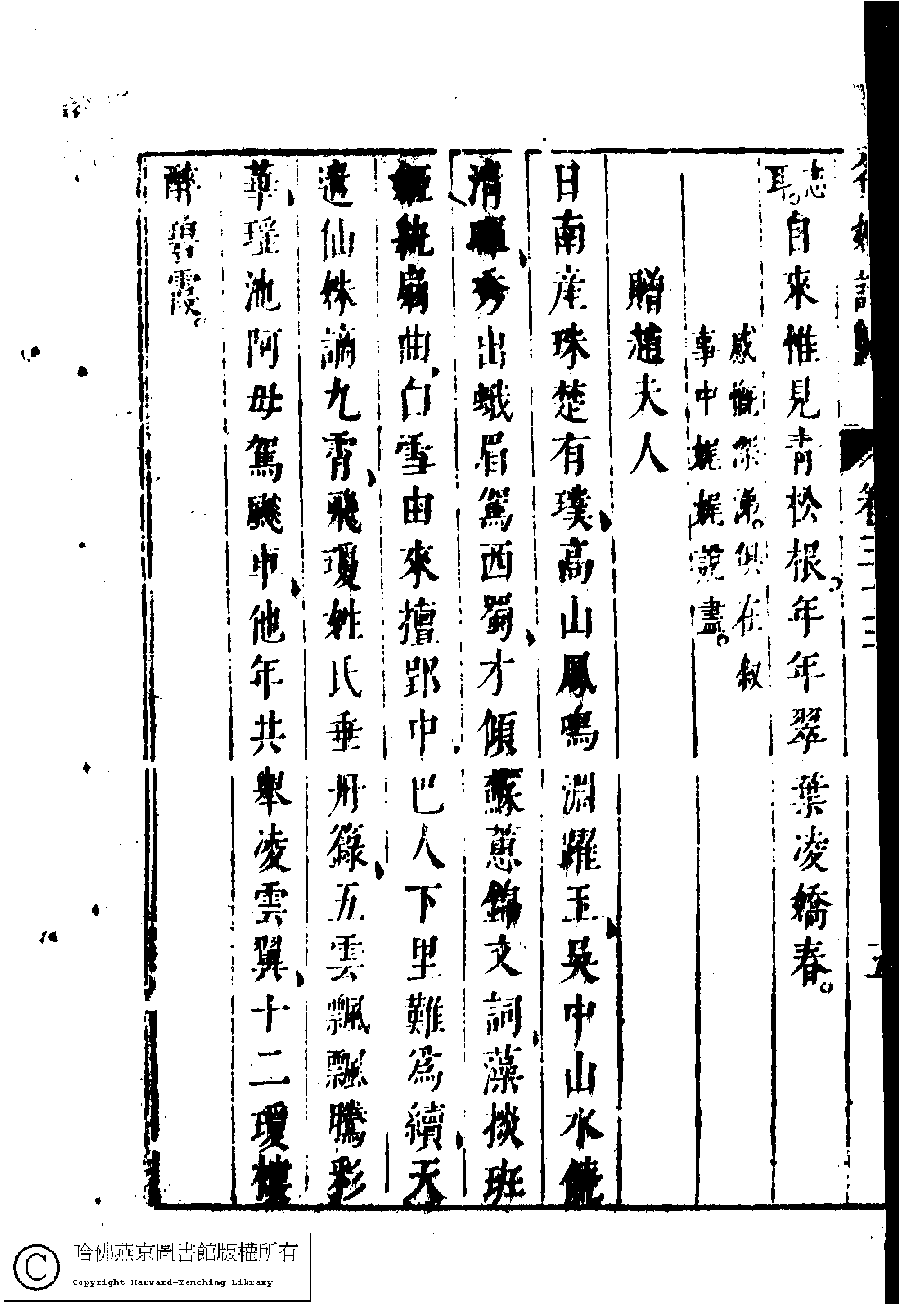 卷三十三
志
耳自來惟見青松根年年翠葉凌嬌春
感慨深凍俱在叙
事中娓娓說盡
贈趙夫人
日南産珠楚有璞高山鳳鳴淵躍玉吳中山水饒
清暉秀出蛾眉駕西蜀才傾蘇蕙錦文詞藻掞班
姬紈扇曲白雪由來擅郢中巴人下里難為續天
遣仙姝謫九霄飛瓊姓氏垂丹籙五雲飄飄騰彩
華瑶池阿母駕飇車他年共舉凌雲翼十二瓊樓
醉碧霞
哈佛燕京圖書館版權所有
Copyright Harvard-Yenching Library